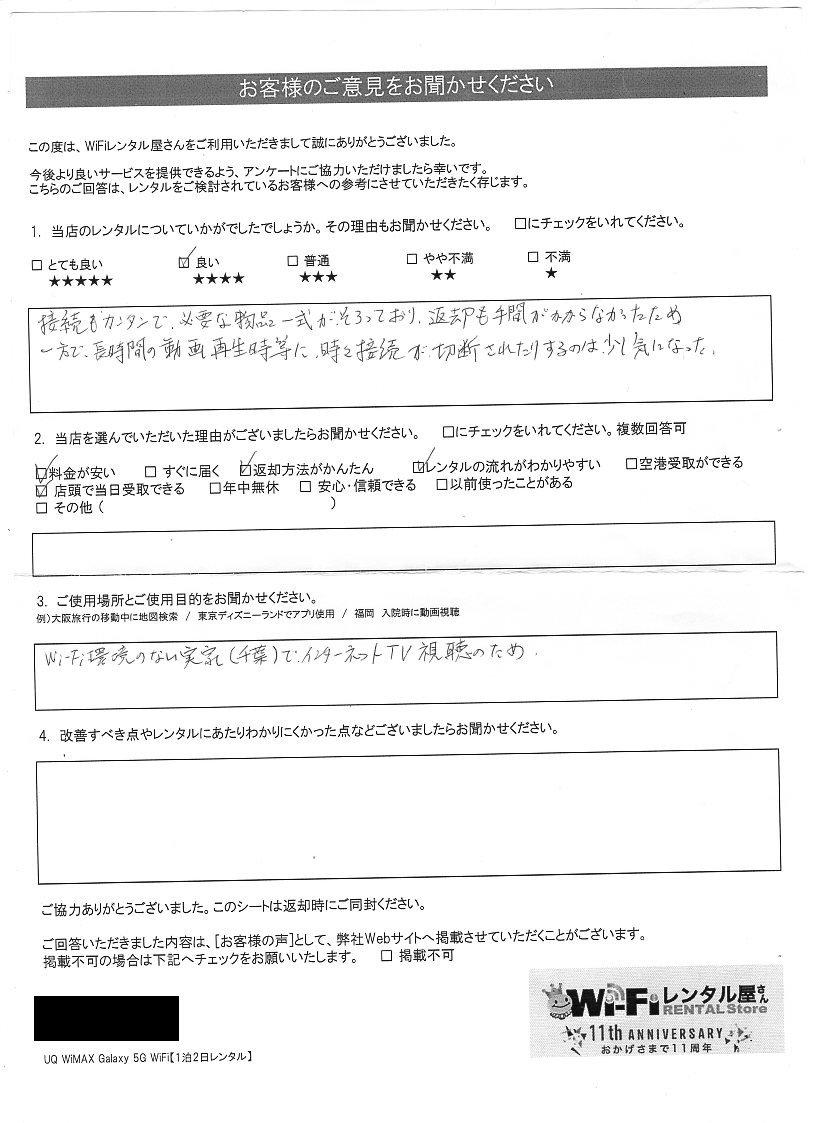 お客様のご意見をお聞かせください
この度は、WiFiレンタル屋さんをご利用いただきまして誠にありがとうございました。
今後より良いサービスを提供できるよう、アンケートにご協力いただけましたら幸いです。
こちらのご回答は、レンタルをご検討されているお客様への参考にさせていただきたく存じます。
1. 当店のレンタルについていかがでしたでしょうか。その理由もお聞かせください。 □にチェックをいれてください。
□ とても良い ☑ 良い □ 普通 □ やや不満 □ 不満
★★★★★ ★★★★ ★★★ ★★ ★
接続もカンタンで、必要な物品一式がそろっており、返却も手間がかからなかったため
一方で、長時間の動画再生時等に、時々接続が切断されたりするのは少し気になった。
2. 当店を選んでいただいた理由がございましたらお聞かせください。 □にチェックをいれてください。複数回答可
☑料金が安い □ すぐに届く ☑返却方法がかんたん ☑レンタルの流れがわかりやすい □空港受取ができる
☑ 店頭で当日受取できる □年中無休 □ 安心・信頼できる □以前使ったことがある
□ その他 ( )
3. ご使用場所とご使用目的をお聞かせください。
例)大阪旅行の移動中に地図検索 / 東京ディズニーランドでアプリ使用 / 福岡 入院時に動画視聴
Wi-Fi環境のない実家(千葉)で、インターネットTV視聴のため.
4. 改善すべき点やレンタルにあたりわかりにくかった点などございましたらお聞かせください。
ご協力ありがとうございました。このシートは返却時にご同封ください。
ご回答いただきました内容は、[お客様の声]として、弊社Webサイトへ掲載させていただくことがございます。
掲載不可の場合は下記へチェックをお願いいたします。 □ 掲載不可
Wi-Fiレンタル屋さん
RENTAL Store
11th ANNIVERSARY
おかげさまで11周年
UQ WiMAX Galaxy 5G WiFi【1泊2日レンタル】